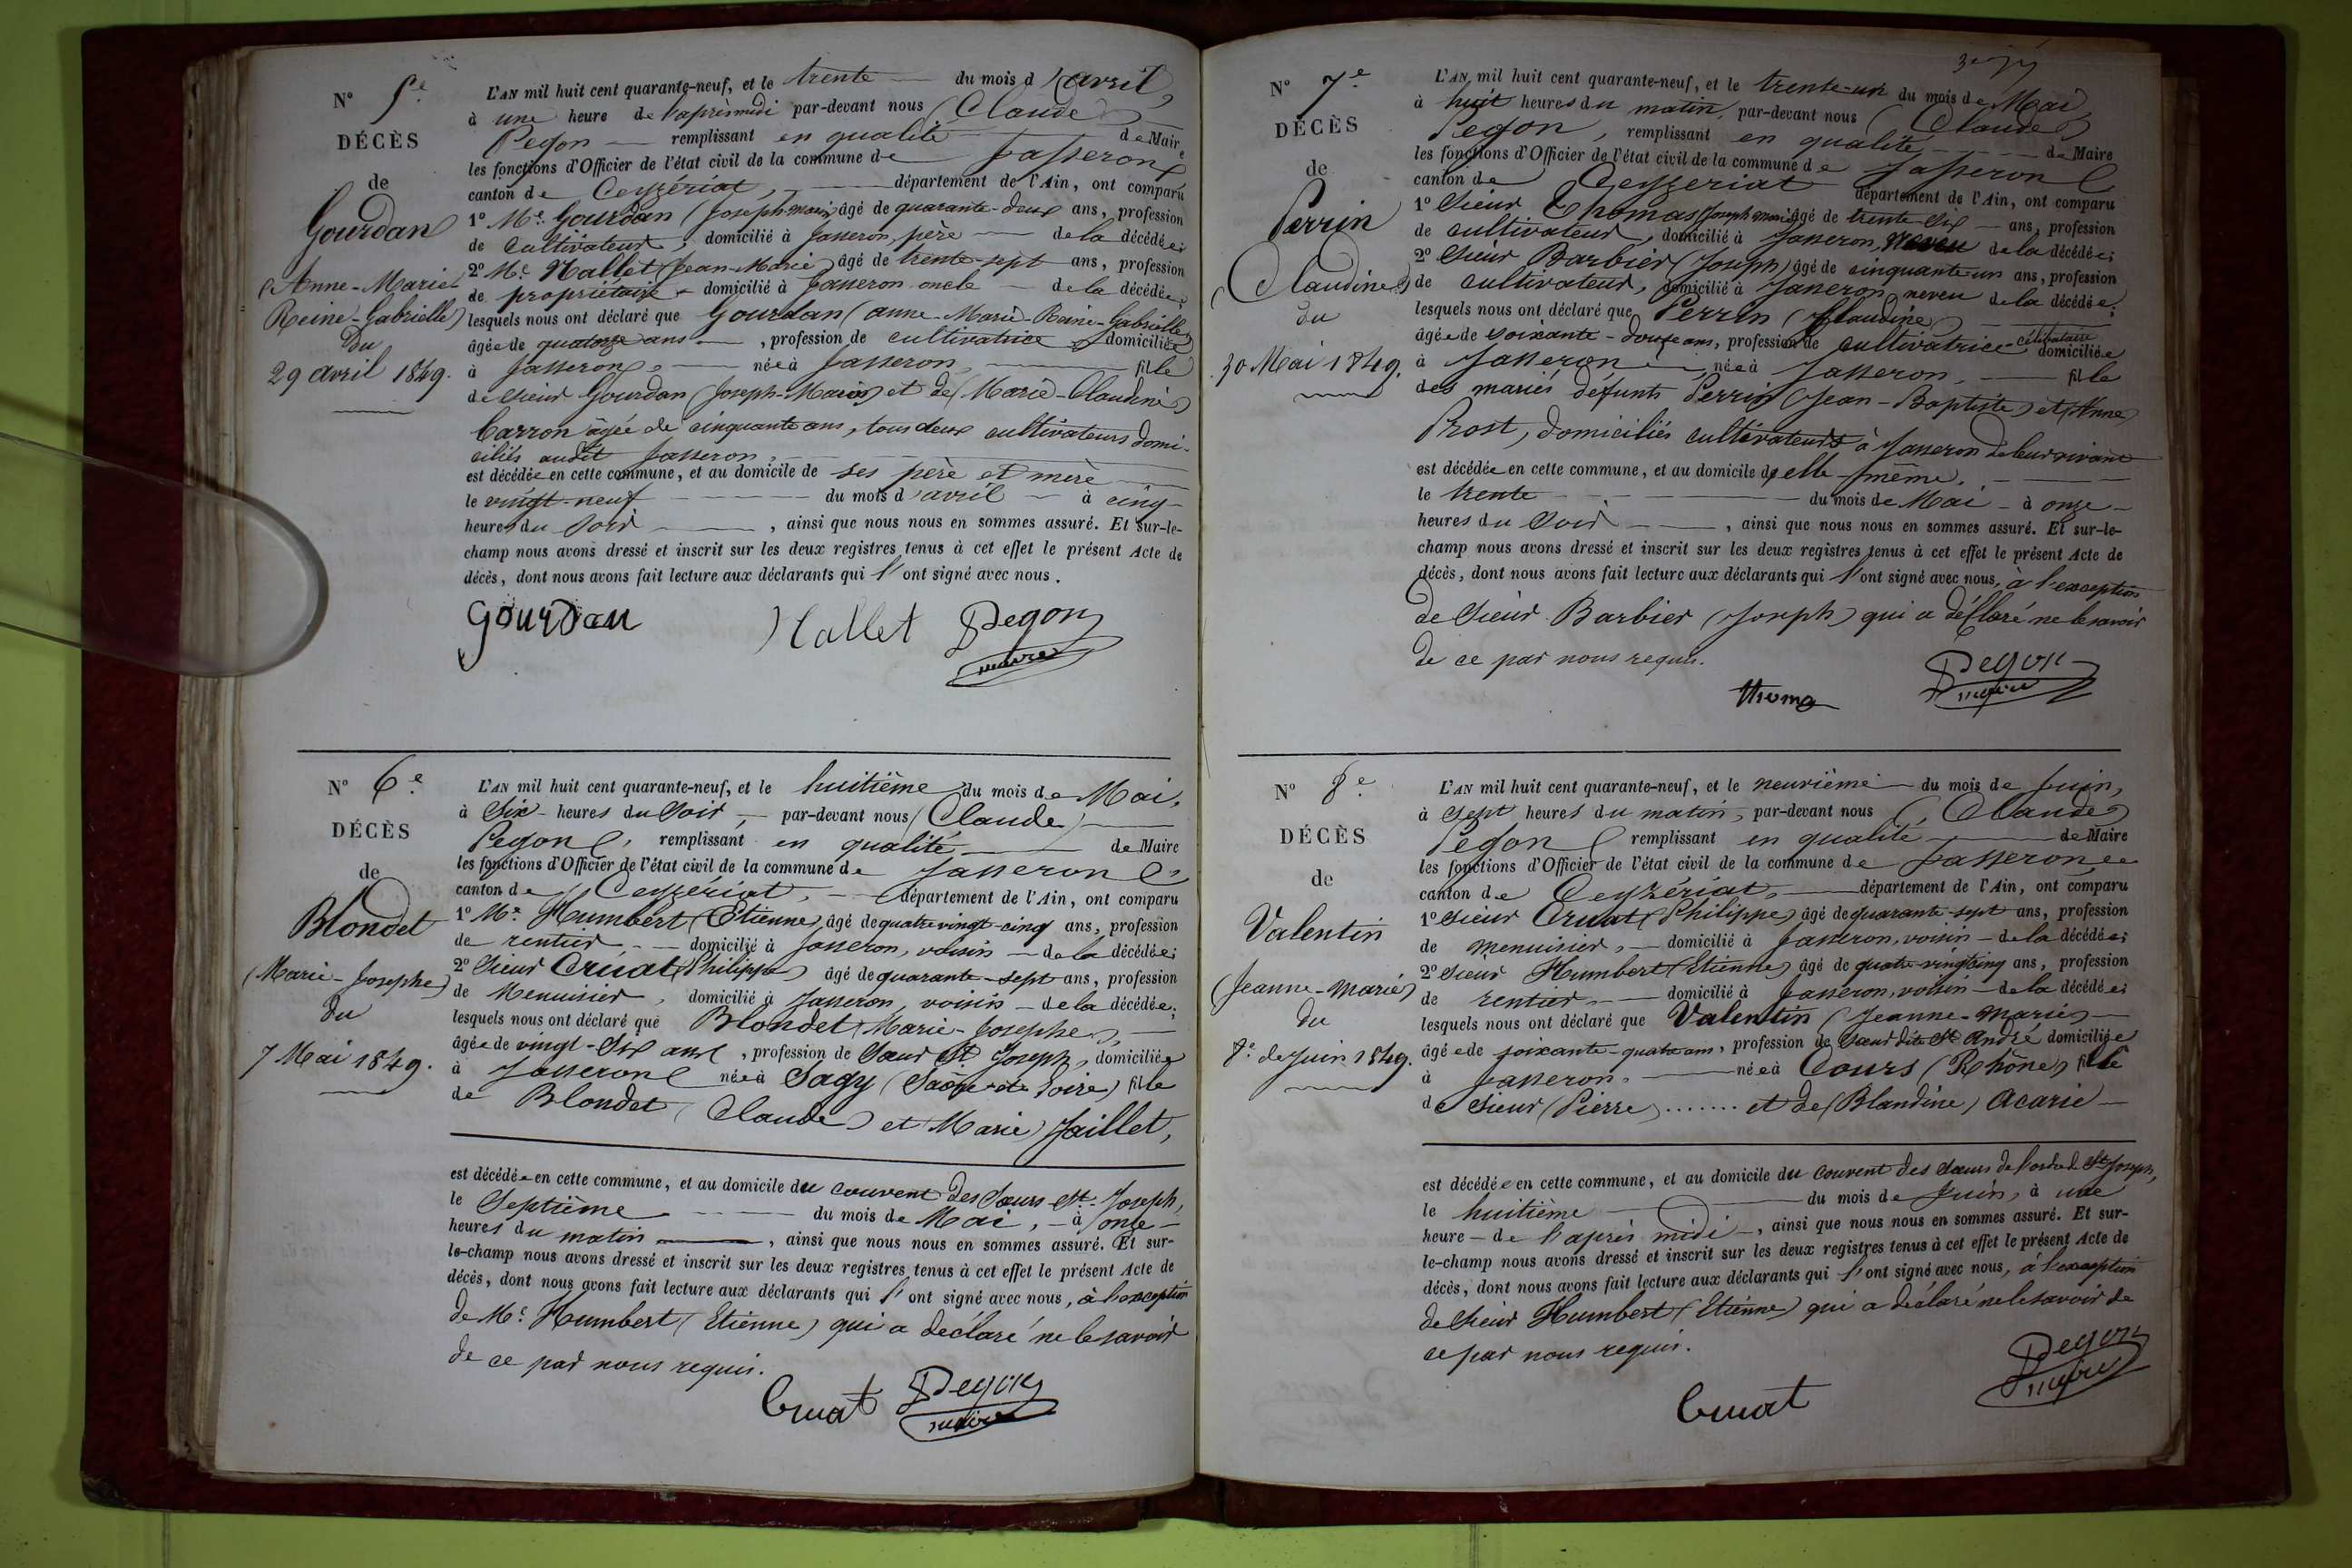 N° 5e.
DÉCÈS
de
Gourdan
(Anne-Marie
Reine-Gabrielle)
du
29 avril 1849.
L'AN mil huit cent quarante-neuf, et le trente du mois d'avril,
à une heure de l'après midi par-devant nous (Claude)
Pegon remplissant en qualité de Maire
les fonctions d'Officier de l'état civil de la commune de Jasseron
canton de Ceyzériat, département de l'Ain, ont comparu
1° Mr. Gourdan (Joseph-Marie) âgé de quarante-deux ans, profession
de cultivateur, domicilié à Jasseron, père de la décédée;
2° Mr. Hallet (Jean-Marie) âgé de trente-sept ans, profession
de propriétaire domicilié à Jasseron oncle de la décédée,
lesquels nous ont déclaré que Gourdan (anne-Marie-Reine-Gabrielle)
âgée de quatorze ans, profession de cultivatrice domiciliée
à Jasseron, née à Jasseron, fille
de sieur Gourdan (Joseph-Marie) et de (Marie-Claudine)
Carron âgée de cinquante ans, tous deux cultivateurs domi-
ciliés audit Jasseron,
est décédée en cette commune, et au domicile de ses père et mère
le vingt-neuf du mois d'avril à cinq
heures du soir, ainsi que nous nous en sommes assuré. Et sur-le-
champ nous avons dressé et inscrit sur les deux registres tenus à cet effet le présent Acte de
décès, dont nous avons fait lecture aux déclarants qui l'ont signé avec nous.
Gourdan Hallet Pegon
maire
N° 6e.
DÉCÈS
de
Blondet
(Marie-Josephe)
du
7 Mai 1849.
L'AN mil huit cent quarante-neuf, et le huitième du mois de Mai,
à six heures du soir, par-devant nous (Claude)
Pegon, remplissant en qualité de Maire
les fonctions d'Officier de l'état civil de la commune de Jasseron,
canton de Ceyzériat, département de l'Ain, ont comparu
1° Mr. Humbert (Etienne) âgé de quatre vingt-cinq ans, profession
de rentier domicilié à Jasseron, voisin de la décédée;
2° Sieur Cruat (Philippe) âgé de quarante-sept ans, profession
de Menuisier, domicilié à Jasseron, voisin de la décédée,
lesquels nous ont déclaré que Blondet (Marie-Josephe),
âgée de vingt-six ans, profession de Sœur St Joseph, domiciliée
à Jasseron née à Sagy (Saône-et-Loire) fille
de Blondet (Claude) et (Marie) Jaillet,
est décédée en cette commune, et au domicile du couvent des Sœurs St. Joseph,
le Septième du mois de Mai, à onze
heures du matin, ainsi que nous nous en sommes assuré. Et sur-
le-champ nous avons dressé et inscrit sur les deux registres tenus à cet effet le présent Acte de
décès, dont nous avons fait lecture aux déclarants qui l'ont signé avec nous, à l'exception
de Mr. Humbert (Etienne) qui a déclaré ne le savoir
de ce par nous requis.
Cruat Pegon
maire
N° 7e
DÉCÈS
de
Perrin
(Claudine)
du
30 Mai 1849.
L'AN mil huit cent quarante-neuf, et le trente-un du mois de Mai,
à huit heures du matin, par-devant nous (Claude)
Pegon, remplissant en qualité de Maire
les fonctions d'Officier de l'état civil de la commune de Jasseron
canton de Ceyzeriat département de l'Ain, ont comparu
1° Sieur Thomas (Joseph Marie) âgé de trente-six ans, profession
de cultivateur, domicilié à Jasseron, Neveu de la décédée;
2° Sieur Barbier (Joseph) âgé de cinquante-un ans, profession
de cultivateur, domicilié à Jasseron neveu de la décédée,
lesquels nous ont déclaré que Perrin (Claudine)
âgée de soixante-douze ans, profession de cultivatrice célibataire domiciliée
à Jasseron, née à Jasseron, fille
des mariés défunts Perrin (Jean-Baptiste) et (Anne)
Prost, domiciliés cultivateurs à Jasseron de leur vivant
est décédée en cette commune, et au domicile d'elle-même,
le trente du mois de Mai à onze
heures du soir, ainsi que nous nous en sommes assuré. Et sur-le-
champ nous avons dressé et inscrit sur les deux registres tenus à cet effet le présent Acte de
décès, dont nous avons fait lecture aux déclarants qui l'ont signé avec nous, à l'exception
de Sieur Barbier (Joseph) qui a déclaré ne le savoir
de ce par nous requis.
Thoma Pegon
maire
N° 8e
DÉCÈS
de
Valentin
(Jeanne-Marie)
du
8e. de Juin 1849.
L'AN mil huit cent quarante-neuf, et le neuvième du mois de Juin,
à sept heures du matin, par-devant nous (Claude)
Pegon remplissant en qualité de Maire
les fonctions d'Officier de l'état civil de la commune de Jasseron
canton de Ceyzériat, département de l'Ain, ont comparu
1° Sieur Cruat (Philippe) âgé de quarante-sept ans, profession
de menuisier, domicilié à Jasseron, voisin de la décédée;
2° Sieur Humbert (Etienne) âgé de quatre-vingt cinq ans, profession
de rentier, domicilié à Jasseron, voisin de la décédée;
lesquels nous ont déclaré que Valentin (Jeanne-Marie)
âgée de soixante-quatre ans, profession de Sœur dite St André domiciliée
à Jasseron, née à Cours (Rhône) fille
de Sieur (Pierre) ....... et de (Blandine) Acarie
est décédée en cette commune, et au domicile du couvent des Sœurs de l'ordre de St Joseph,
le huitième du mois de Juin, à une
heure de l'après midi, ainsi que nous nous en sommes assuré. Et sur-
le-champ nous avons dressé et inscrit sur les deux registres tenus à cet effet le présent Acte de
décès, dont nous avons fait lecture aux déclarants qui l'ont signé avec nous, à l'exception
de Sieur Humbert (Etienne) qui a déclaré ne le savoir de
ce par nous requis.
Cruat Pegon
maire